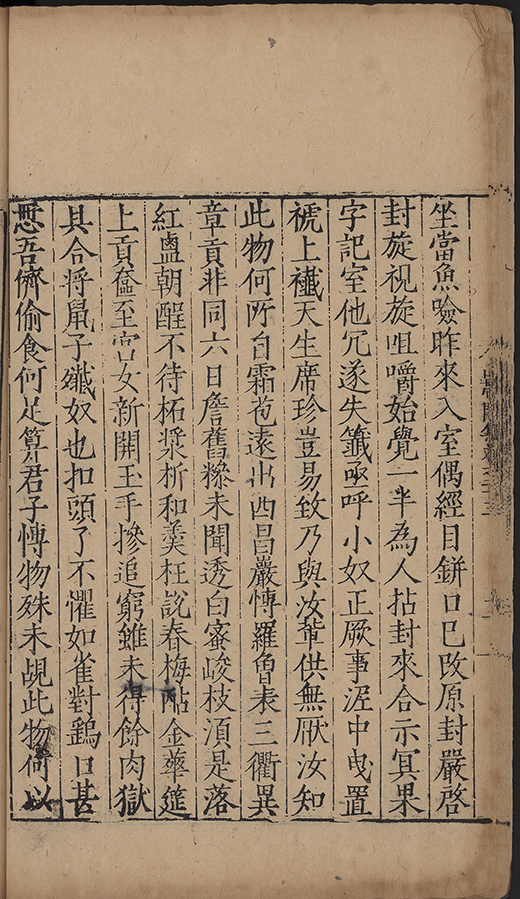 坐當魚噞昨來入室偶經目缾口巳攺原封嚴啓
封旋視旋咀嚼始覺一半為人拈封來合示冥果
字記室他冗遂失籤亟呼小奴正厥事泥中曳置
褫上襳天生席珍豈易致乃與汝輩供無厭汝知
此物何所自霜苞遠出西昌嚴慱羅魯表三衢異
章貢非同六日詹舊糝未聞透白蜜峻枝湏是落
紅盧朝酲不待柘漿析和羮枉說春梅酟金華筵
上貢奩至宫女新開玉手摻追窮雖未得餘肉獄
具合將鼠子殱奴也扣頭了不懼如雀對鷂口甚
慙吾儕偷食何足筭君子慱物殊未覘此物何以